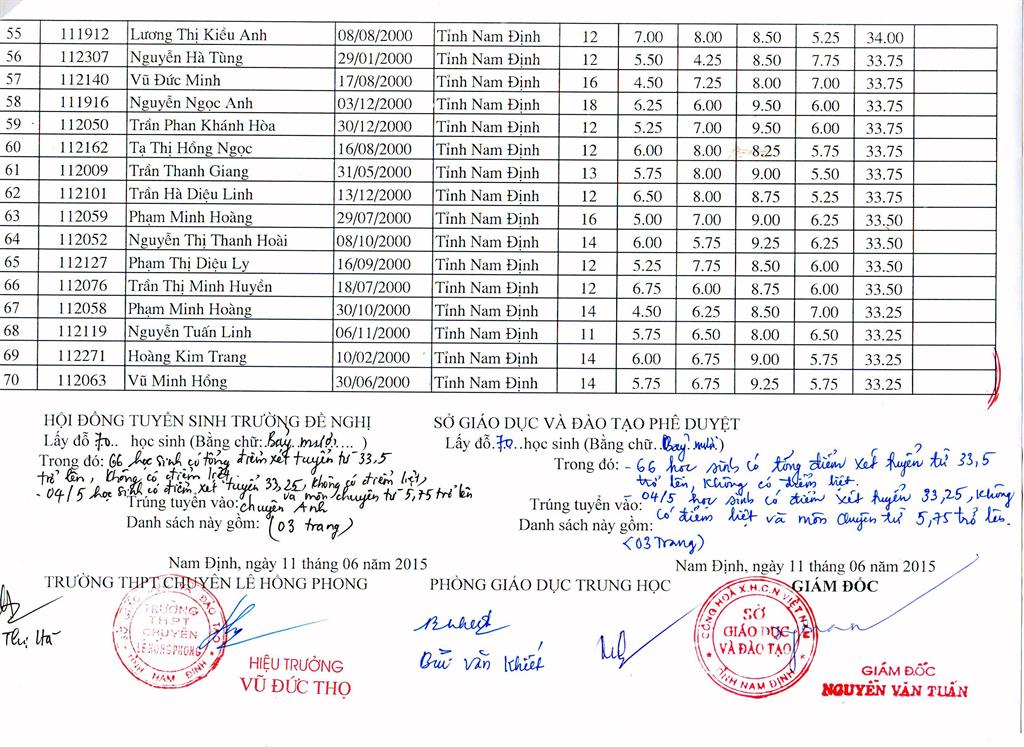 55 111912 Lương Thị Kiều Anh 08/08/2000 Tỉnh Nam Định 12 7.00 8.00 8.50 5.25 34.00
56 112307 Nguyễn Hà Tùng 29/01/2000 Tỉnh Nam Định 12 5.50 4.25 8.50 7.75 33.75
57 112140 Vũ Đức Minh 17/08/2000 Tỉnh Nam Định 16 4.50 7.25 8.00 7.00 33.75
58 111916 Nguyễn Ngọc Anh 03/12/2000 Tỉnh Nam Định 18 6.25 6.00 9.50 6.00 33.75
59 112050 Trần Phan Khánh Hòa 30/12/2000 Tỉnh Nam Định 12 5.25 7.00 9.50 6.00 33.75
60 112162 Tạ Thị Hồng Ngọc 16/08/2000 Tỉnh Nam Định 12 6.00 8.00 8.25 5.75 33.75
61 112009 Trần Thanh Giang 31/05/2000 Tỉnh Nam Định 13 5.75 8.00 9.00 5.50 33.75
62 112101 Trần Hà Diệu Linh 13/12/2000 Tỉnh Nam Định 12 6.50 8.00 8.75 5.25 33.75
63 112059 Phạm Minh Hoàng 29/07/2000 Tỉnh Nam Định 16 5.00 7.00 9.00 6.25 33.50
64 112052 Nguyễn Thị Thanh Hoài 08/10/2000 Tỉnh Nam Định 14 6.00 5.75 9.25 6.25 33.50
65 112127 Phạm Thị Diệu Ly 16/09/2000 Tỉnh Nam Định 12 5.25 7.75 8.50 6.00 33.50
66 112076 Trần Thị Minh Huyền 18/07/2000 Tỉnh Nam Định 12 6.75 6.00 8.75 6.00 33.50
67 112058 Phạm Minh Hoàng 30/10/2000 Tỉnh Nam Định 14 4.50 6.25 8.50 7.00 33.25
68 112119 Nguyễn Tuấn Linh 06/11/2000 Tỉnh Nam Định 11 5.75 6.50 8.00 6.50 33.25
69 112271 Hoàng Kim Trang 10/02/2000 Tỉnh Nam Định 14 6.00 6.75 9.00 5.75 33.25
70 112063 Vũ Minh Hồng 30/06/2000 Tỉnh Nam Định 14 5.75 6.75 9.25 5.75 33.25
HỘI ĐỒNG TUYỂN SINH TRƯỜNG ĐỀ NGHỊ
Lấy đỗ 70.. học sinh (Bằng chữ: Bảy mươi.... )
Trong đó: 66 học sinh có tổng điểm xét tuyển từ 33,5
trở lên, không có điểm liệt
- 04/5 học sinh có điểm xét tuyển 33,25, không có điểm liệt,
và môn chuyên từ 5,75 trở lên
Trúng tuyển vào: chuyên Anh
Danh sách này gồm: (03 trang)
Nam Định, ngày 11 tháng 06 năm 2015
TRƯỜNG THPT CHUYÊN LÊ HỒNG PHONG
Thị Hà
TRƯỜNG
THPT
CHUYÊN
LÊ HỒNG PHONG
TỈNH NAM ĐỊNH
HIỆU TRƯỞNG
VŨ ĐỨC THỌ
SỞ GIÁO DỤC VÀ ĐÀO TẠO PHÊ DUYỆT
Lấy đỗ.70...học sinh (Bằng chữ..Bảy mươi )
Trong đó: - 66 học sinh có tổng điểm xét tuyển từ 33,5
trở lên, không có điểm liệt.
Trúng tuyển vào: 04/5 học sinh có điểm xét tuyển 33,25, không
có điểm liệt và môn chuyên từ 5,75 trở lên.
Danh sách này gồm:
(03 Trang)
Nam Định, ngày 11 tháng 06 năm 2015
PHÒNG GIÁO DỤC TRUNG HỌC
Bùi Văn Khiết
GIÁM ĐỐC
CỘNG HOÀ X.H.C.N VIỆT NAM
SỞ
GIÁO DỤC
VÀ ĐÀO TẠO
TỈNH NAM ĐỊNH
GIÁM ĐỐC
NGUYỄN VĂN TUẤN